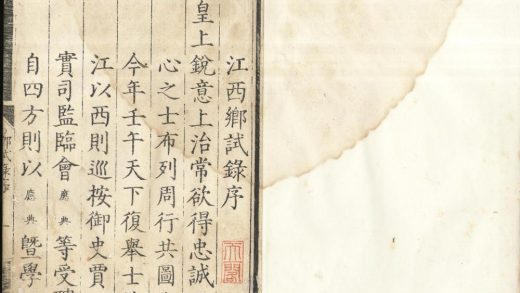 江西鄉試錄序
皇上銳意上治常欲得忠誠
心之士布列周行共圖
今年壬午天下復舉士
江以西則巡按御史賈
實司監臨會應典等受
自四方則以應典暨學